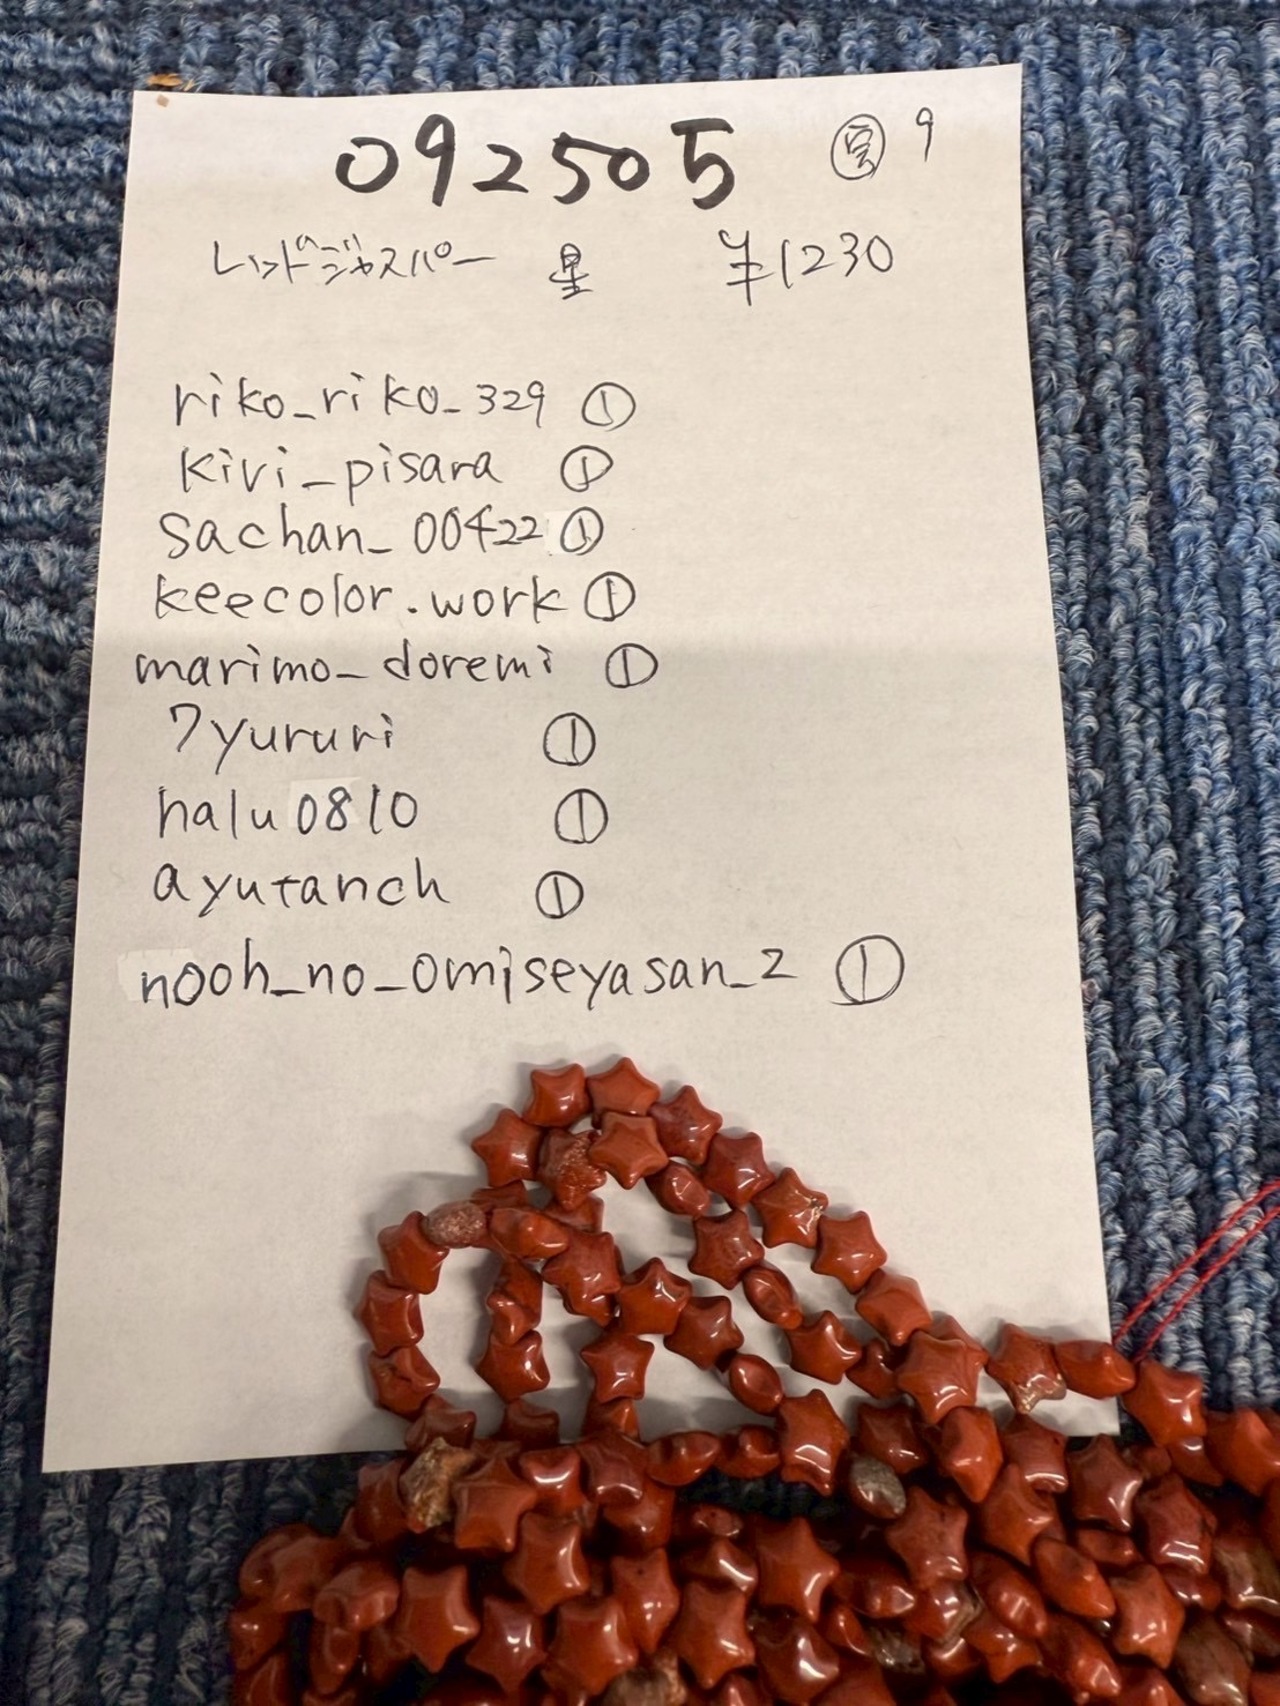 092505 ㊂ 9
レッドジャスパー 星 ¥1230
riko_riko_329 ①
kivi_pisara ①
sachan_00422 ①
keecolor.work ①
marimo_doremi ①
7yururi ①
halu0810 ①
ayutanch ①
nooh_no_omiseyasan_2 ①